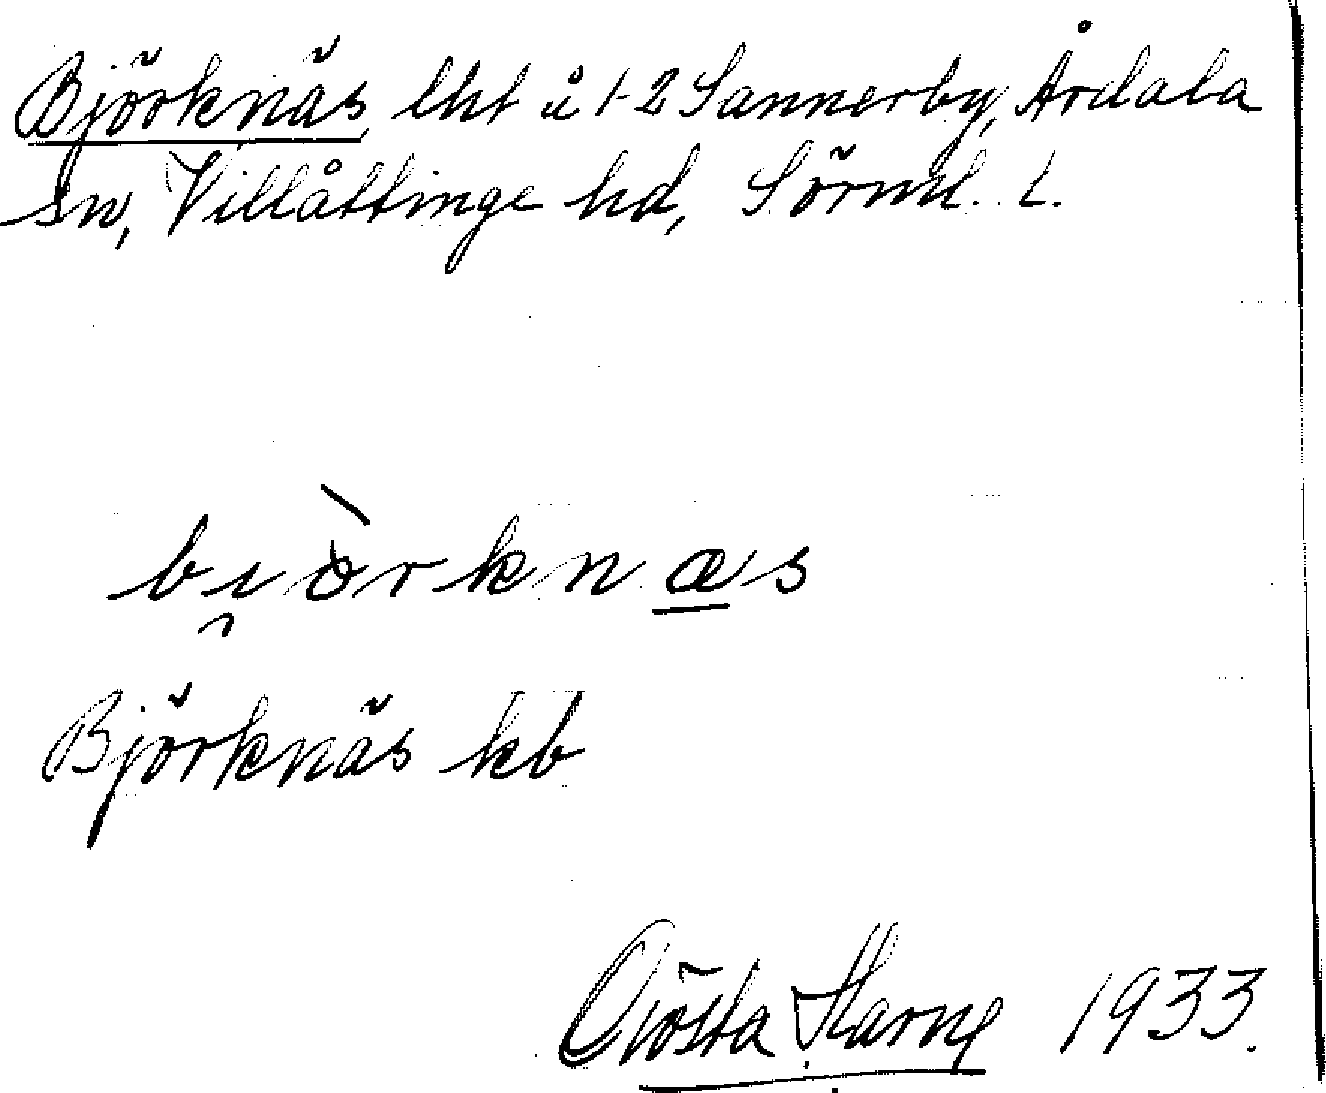 Björknäs, lht å 1-2 Sannerby, Årdala
sn, Villåttinge hd, Sörml. l.
bi̯òrknæ̱s
Björknäs kb
Gösta 1933.